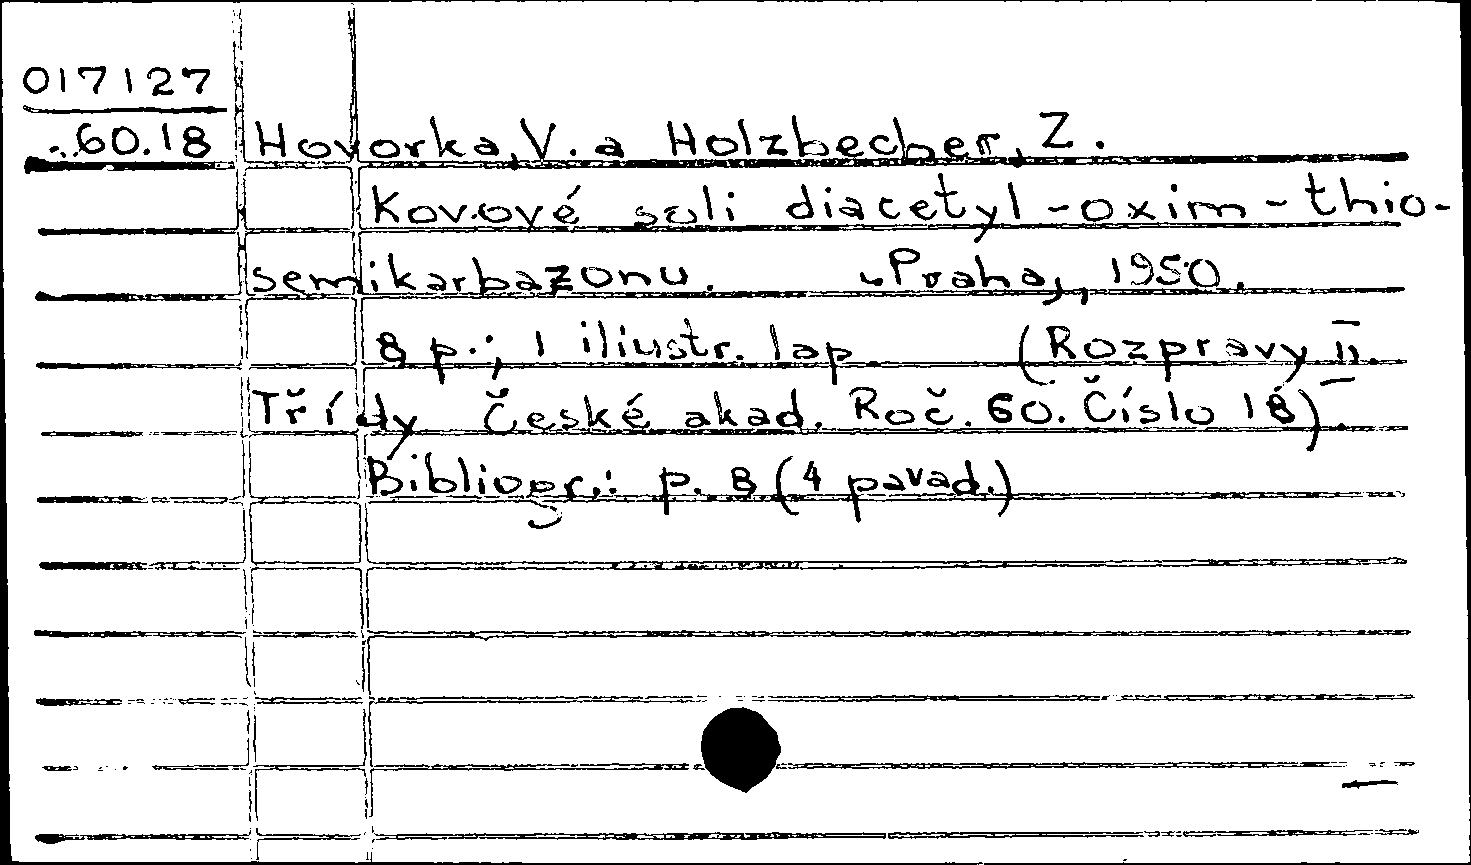 017127
60.18 Hovorka, V. a Holzbecher, Z.
Kovové soli diacetyl-oxim-thio-
semikarbazonu. Praha, 1950.
8 p.; 1 iliustr. lap. (Rozpravy II.
Třídy České akad. Roč. 60. Číslo 18).
Bibliogr.: p. 8 (4 pavad.)